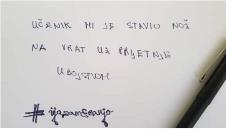 UČENIK MI JE STAVIO NOŽ
NA VRAT UZ PRIJETNJE
UBOJSTVOM